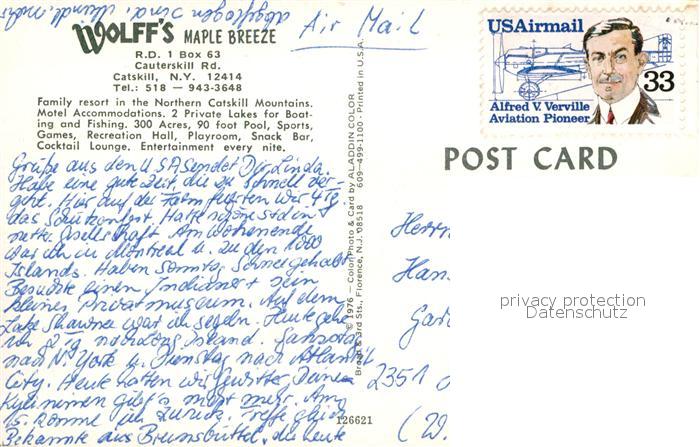 Air Mail
WOLFF'S MAPLE BREEZE
R.D. 1 Box 63
Cauterskill Rd.
Catskill, N.Y. 12414
Tel.: 518 — 943-3648
Family resort in the Northern Catskill Mountains.
Motel Accommodations. 2 Private Lakes for Boat-
ing and Fishing. 300 Acres, 90 foot Pool, Sports,
Games, Recreation Hall, Playroom, Snack Bar,
Cocktail Lounge. Entertainment every nite.
Grüße aus den USA sendet Dir Linda.
Habe eine gute Zeit, die zu schnell ver-
geht. Hier auf der Farm feierten wir 4 Tg
das Schützenfest. Hatte
nette Gesellschaft. Am Wochenende
war ich in Montreal u. zu den 1000
Islands. Haben Sonntag
Besuchte einen Indianer + sein
kleines Privatmuseum. Auf dem
Lake war ich segeln. Heute gehe
ich 2 Tg nach Long Island.
nach N. York u. Dienstag nach Atlantic
City. Heute hatten wir Gewitter
gibt's
15. komme ich zurück. Treffe gleich
Bekannte aus Brunsbüttel, die heute
© 1976 — Color Photo & Card by ALADDIN COLOR
Broad & 3rd Sts., Florence, N.J. 08518 609-499-1100 - Printed in U.S.A.
126621
USAirmail
33
Alfred V. Verville
Aviation Pioneer
POST CARD
Herrn
Han
Gar
2351
(W.
privacy protection
Datenschutz